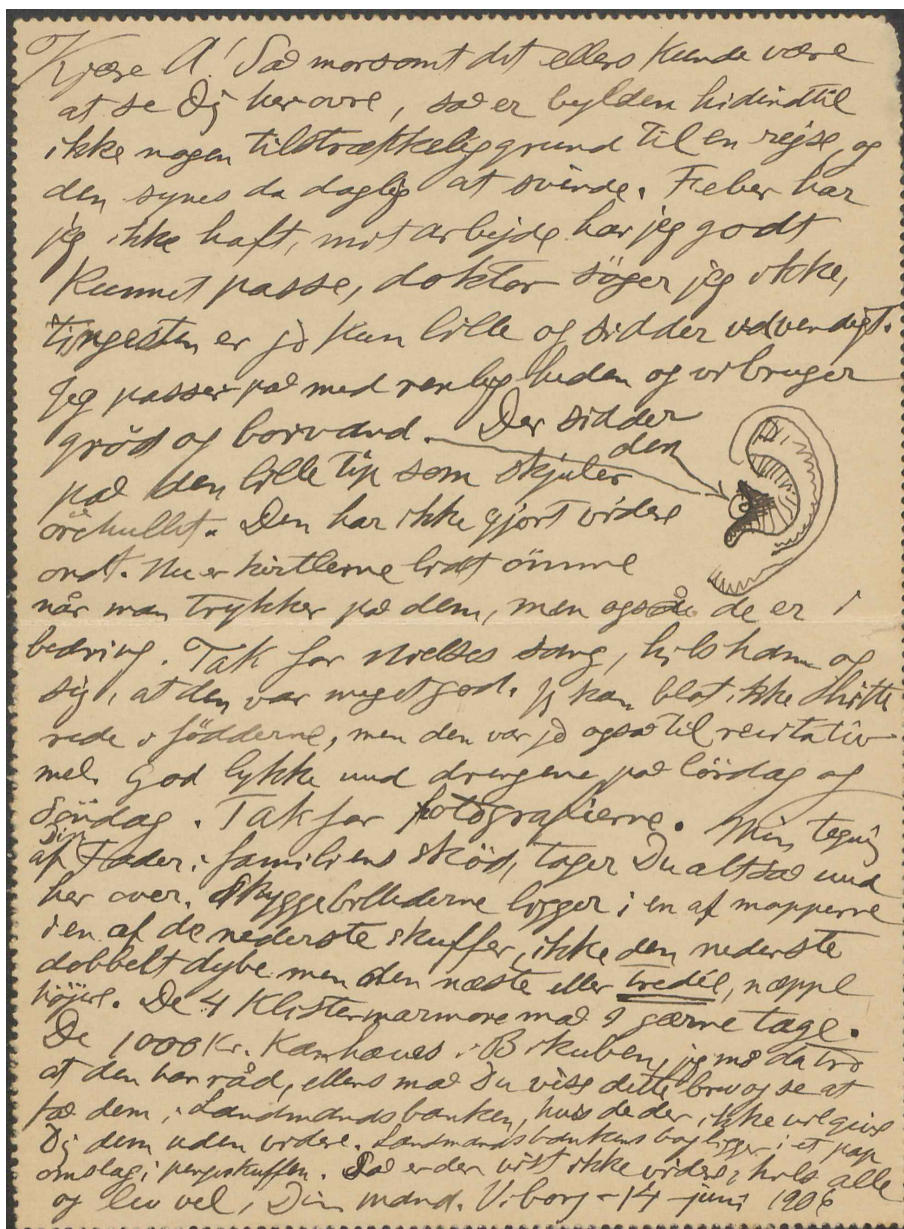 Kjære A! Saa morsomt det ellers kunde være
at se Dig herovre, saa er bylden hidindtil
ikke nogen tilstrækkelig grund til en rejse, og
den synes da daglig at svinde. Feber har
jeg ikke haft, mit arbejde har jeg godt
kunnet passe, doktor söger jeg ikke,
tingesten er jo kun lille og sidder udvendigt.
Jeg passer paa med renligheden og vi bruger
gröd og borvand. Der sidder
den
paa den lille tip som skjuler
örehullet. Den har ikke gjort videre
ondt. Nu er kirtlerne lidt ömme
når man trykker paa dem, men også de er i
bedring. Tak for Nielses sang, hils ham og
sig, at den var meget god. Jeg kan blot ikke hitte
rede i födderne, men den var jo ogsaa til recitativ
mel. God lykke med drengene paa lördag og
Söndag. Tak for fotografierne. Min tegning
af Din Fader i familiens sköd, tager Du altsaa med
her over. Skyggebillederne ligger i en af mapperne
i en af de nederste skuffer, ikke den nederste
dobbelt dybe men den næste eller tredie, næppe
höjere. De 4 Klistermarmore maa I gærne tage.
De 1000 Kr. kan hæves i Bikuben, jeg må da tro
at den har råd, ellers maa Du vise dette brev og se at
faa dem i Landmandsbanken, hvis de der ikke vil give
Dig dem uden videre. Landmandsbankens bog ligger i et pap
omslag i pengeskuffen. Saa er der vist ikke videre, hils alle
og lev vel, Din mand. Viborg - 14 - juni 1906